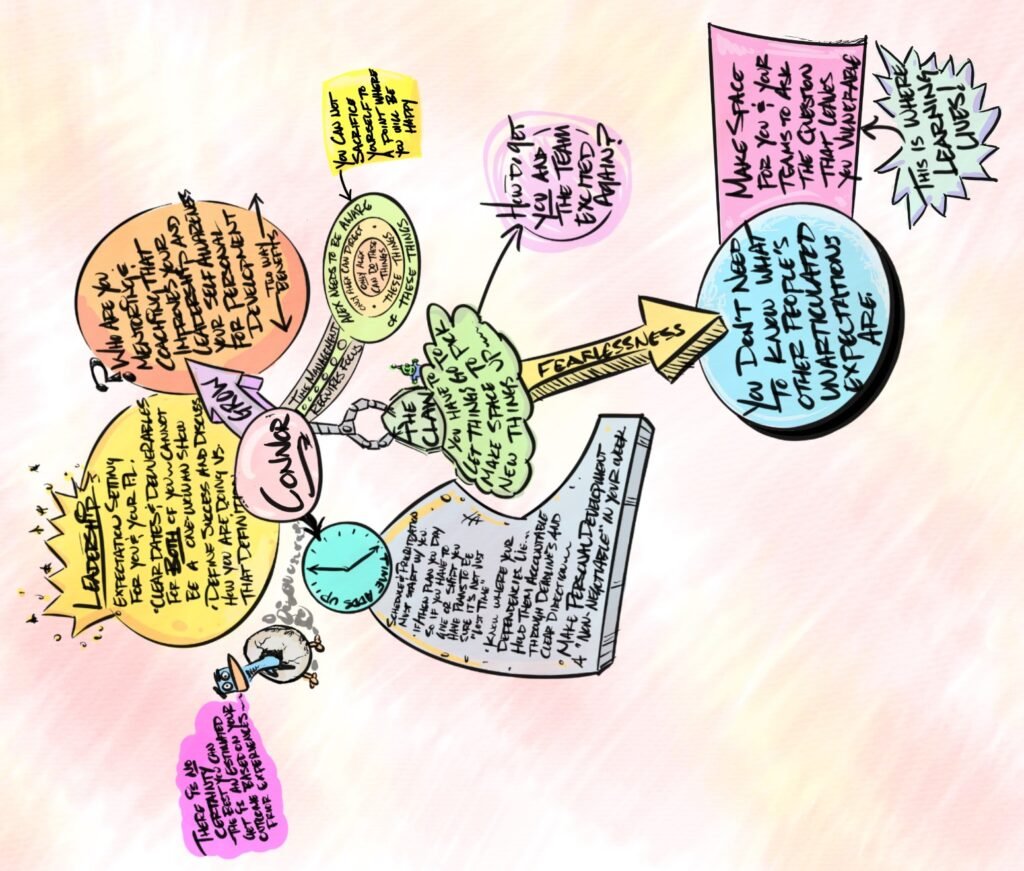 LEADERSHIP
EXPECTATION SETTING
FOR YOU & YOUR
• CLEAR DATES & DELIVERABLES
FOR BOTH OF YOU... CANNOT
BE A ONE-WOMAN SHOW
• DEFINE SUCCESS AND DISCUSS
HOW YOU ARE DOING VS.
THAT DEFINITION
WHO ARE YOU
MENTORING &
COACHING THAT
IMPROVES YOUR
LEADERSHIP AND
YOUR SELF AWARENESS
FOR PERSONAL
DEVELOPMENT
TWO WAY
BENEFITS
GROW
CONNOR
THE MANAGEMENT
REQUIRES FOCUS
ALEX NEEDS TO BE AWARE
OF THESE THINGS
ONLY ALEX CAN DIRECT
THESE THINGS
ONLY ALEX
CAN DO THESE
THINGS
YOU CAN NOT
SACRIFICE
YOURSELF TO
A POINT WHERE
YOU WILL BE
HAPPY
THERE IS NO
CERTAINTY
THE BEST YOU CAN
GET IS AN ESTIMATED
OUTCOME BASED ON YOUR
PRIOR EXPERIENCES...
Discovering
TIME ADDS UP
SCHEDULE & PRIORITIZATION
MUST START W/ YOU
• IF/THEN PLAN YOU DAY
SO IF YOU HAVE TO
GIVE OR SHIFT YOU
HAVE PLANS TO BE
SURE IT'S NOT JUST
"LOST TIME"
• KNOW WHERE YOUR
DEPENDENCIES LIE...
HOLD THEM ACCOUNTABLE
THROUGH DEADLINES AND
CLEAR DIRECTION...
MAKE PERSONAL DEVELOPMENT
A "NON-NEGOTIABLE" IN YOUR WEEK
THE
CLAW
YOU HAVE TO
LET THINGS GO TO
MAKE SPACE FOR
NEW THINGS
HOW DO I GET
YOU AND
THE TEAM
EXCITED
AGAIN?
FEARLESSNESS
YOU DON'T NEED
TO KNOW WHAT
OTHER PEOPLE'S
UNARTICULATED
EXPECTATIONS
ARE.
MAKE SPACE
FOR YOU & YOUR
TEAMS TO ASK
THE QUESTION
THAT LEAVES
YOU VULNERABLE
THIS IS WHERE
LEARNING
LIVES!